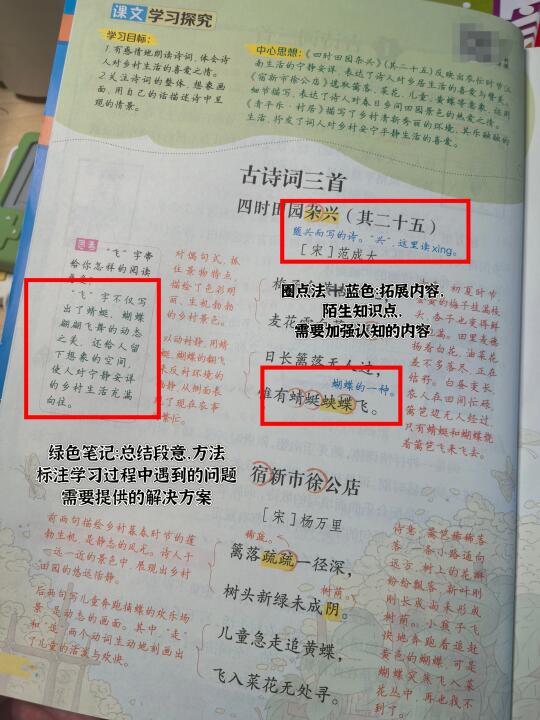 课文学习探究
学习目标:
1.有感情地朗读诗词,体会诗人对乡村生活的喜爱之情。
2.关注诗词的整体,想象画面,用自己的话描述诗中呈现的情景。
中心思想:《四时田园杂兴》(其二十五)反映出农忙时节江南生活的宁静安详,表达了诗人对乡居生活的喜爱与赞美。
《宿新市徐公店》选取篱落、菜花、儿童、黄蝶等意象,运用细节描写,表达了诗人对春日乡间田园景色的热爱之情。
《清平乐·村居》描写了乡村清新秀丽的环境,其乐融融的生活,抒发了词人对乡村安宁平静生活的喜爱。
古诗词三首
四时田园杂兴(其二十五)
随兴而写的诗。“兴”,这里读xìng。
[宋]范成大
思考
“飞”字带给你怎样的阅读
“飞”字不仅写出了蜻蜓、蝴蝶翩翩飞舞的动态之美,还给人留下想象的空间,使人对宁静安详的乡村生活充满向往。
对偶句式,抓住景物特点,描绘了色彩明丽、生机勃勃的乡村景色。
圈点法+蓝色:拓展内容,
陌生知识点,
需要加强认知的内容
麦花
日长篱落无人过,
蝴蝶的一种。
惟有蜻蜓蛱蝶飞。
只有蜻蜓和蝴蝶绕着篱笆飞来飞去。
绿色笔记:总结段意.方法
标注学习过程中遇到的问题
需要提供的解决方案
宿新市徐公店
[宋]杨万里
前两句描绘乡村暮春时节的蓬勃生机,是静态的风光。诗人于一远一近的景色中,展现出乡村田园的悠远恬静。
稀疏。
篱落疏疏一径深,
树荫。
树头新绿未成阴。
后两句写儿童奔跑捕蝶的欢乐场景,是动态的画面。其中,“走”和“追”两个动词生动地刻画出了儿童的活泼与欢快。
儿童急走追黄蝶,
飞入菜花无处寻。
诗意:篱笆稀稀落落,一条小路通向远方,树上的花瓣纷纷飘落,新叶刚刚长成尚未形成树荫。小孩子飞快地奔跑着追赶黄色的蝴蝶,可是蝴蝶突然飞入菜花丛中,再也找不到了。